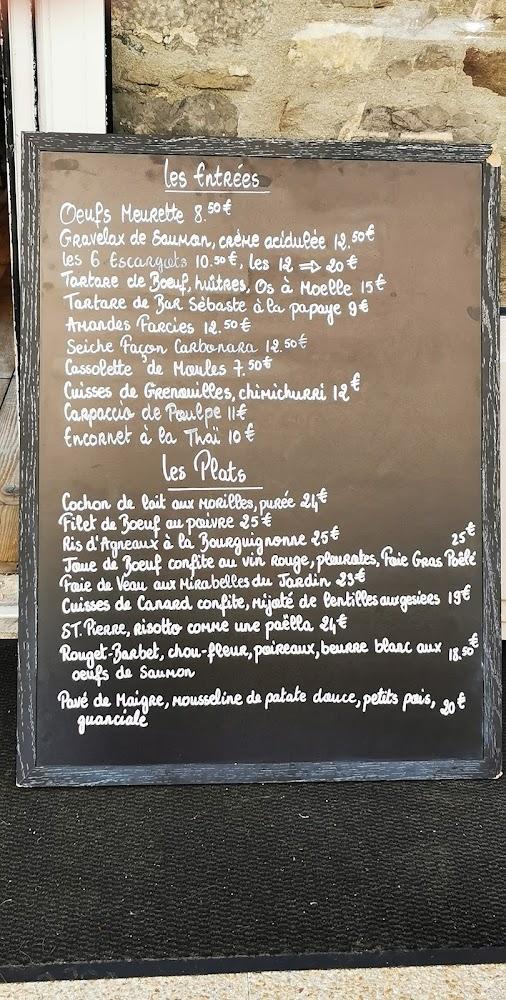 Les Entrées
Oeufs Meurette 8.50€
Gravelax de Saumon, crème acidulée 12.50€
Les 6 Escargots 10.50€, les 12 ⇒ 20€
Tartare de Boeuf, huîtres, Os à Moelle 15€
Tartare de Bar Sébaste à la papaye 9€
Amandes Farcies 12.50€
Seiche Façon Carbonara 12.50€
Cassolette de Moules 7.50€
Cuisses de Grenouilles, chimichurri 12€
Carpaccio de Poulpe 11€
Encornet à la Thaï 10€
Les Plats
Cochon de lait aux morilles, purée 24€
Filet de Boeuf au poivre 25€
Ris d'Agneaux à la Bourguignonne 25€
Joue de Boeuf confite au vin rouge, pleurotes, Foie Gras Poêlé 25€
Foie de Veau aux Mirabelles du Jardin 23€
Cuisses de Canard confite, mijoté de lentilles aux gesiers 19€
ST. Pierre, risotto comme une paëlla 24€
Rouget-Barbet, chou-fleur, poireaux, beurre blanc aux 18.50€
oeufs de Saumon
Pavé de Maigre, mousseline de patate douce, petits pois, 20€
guanciale